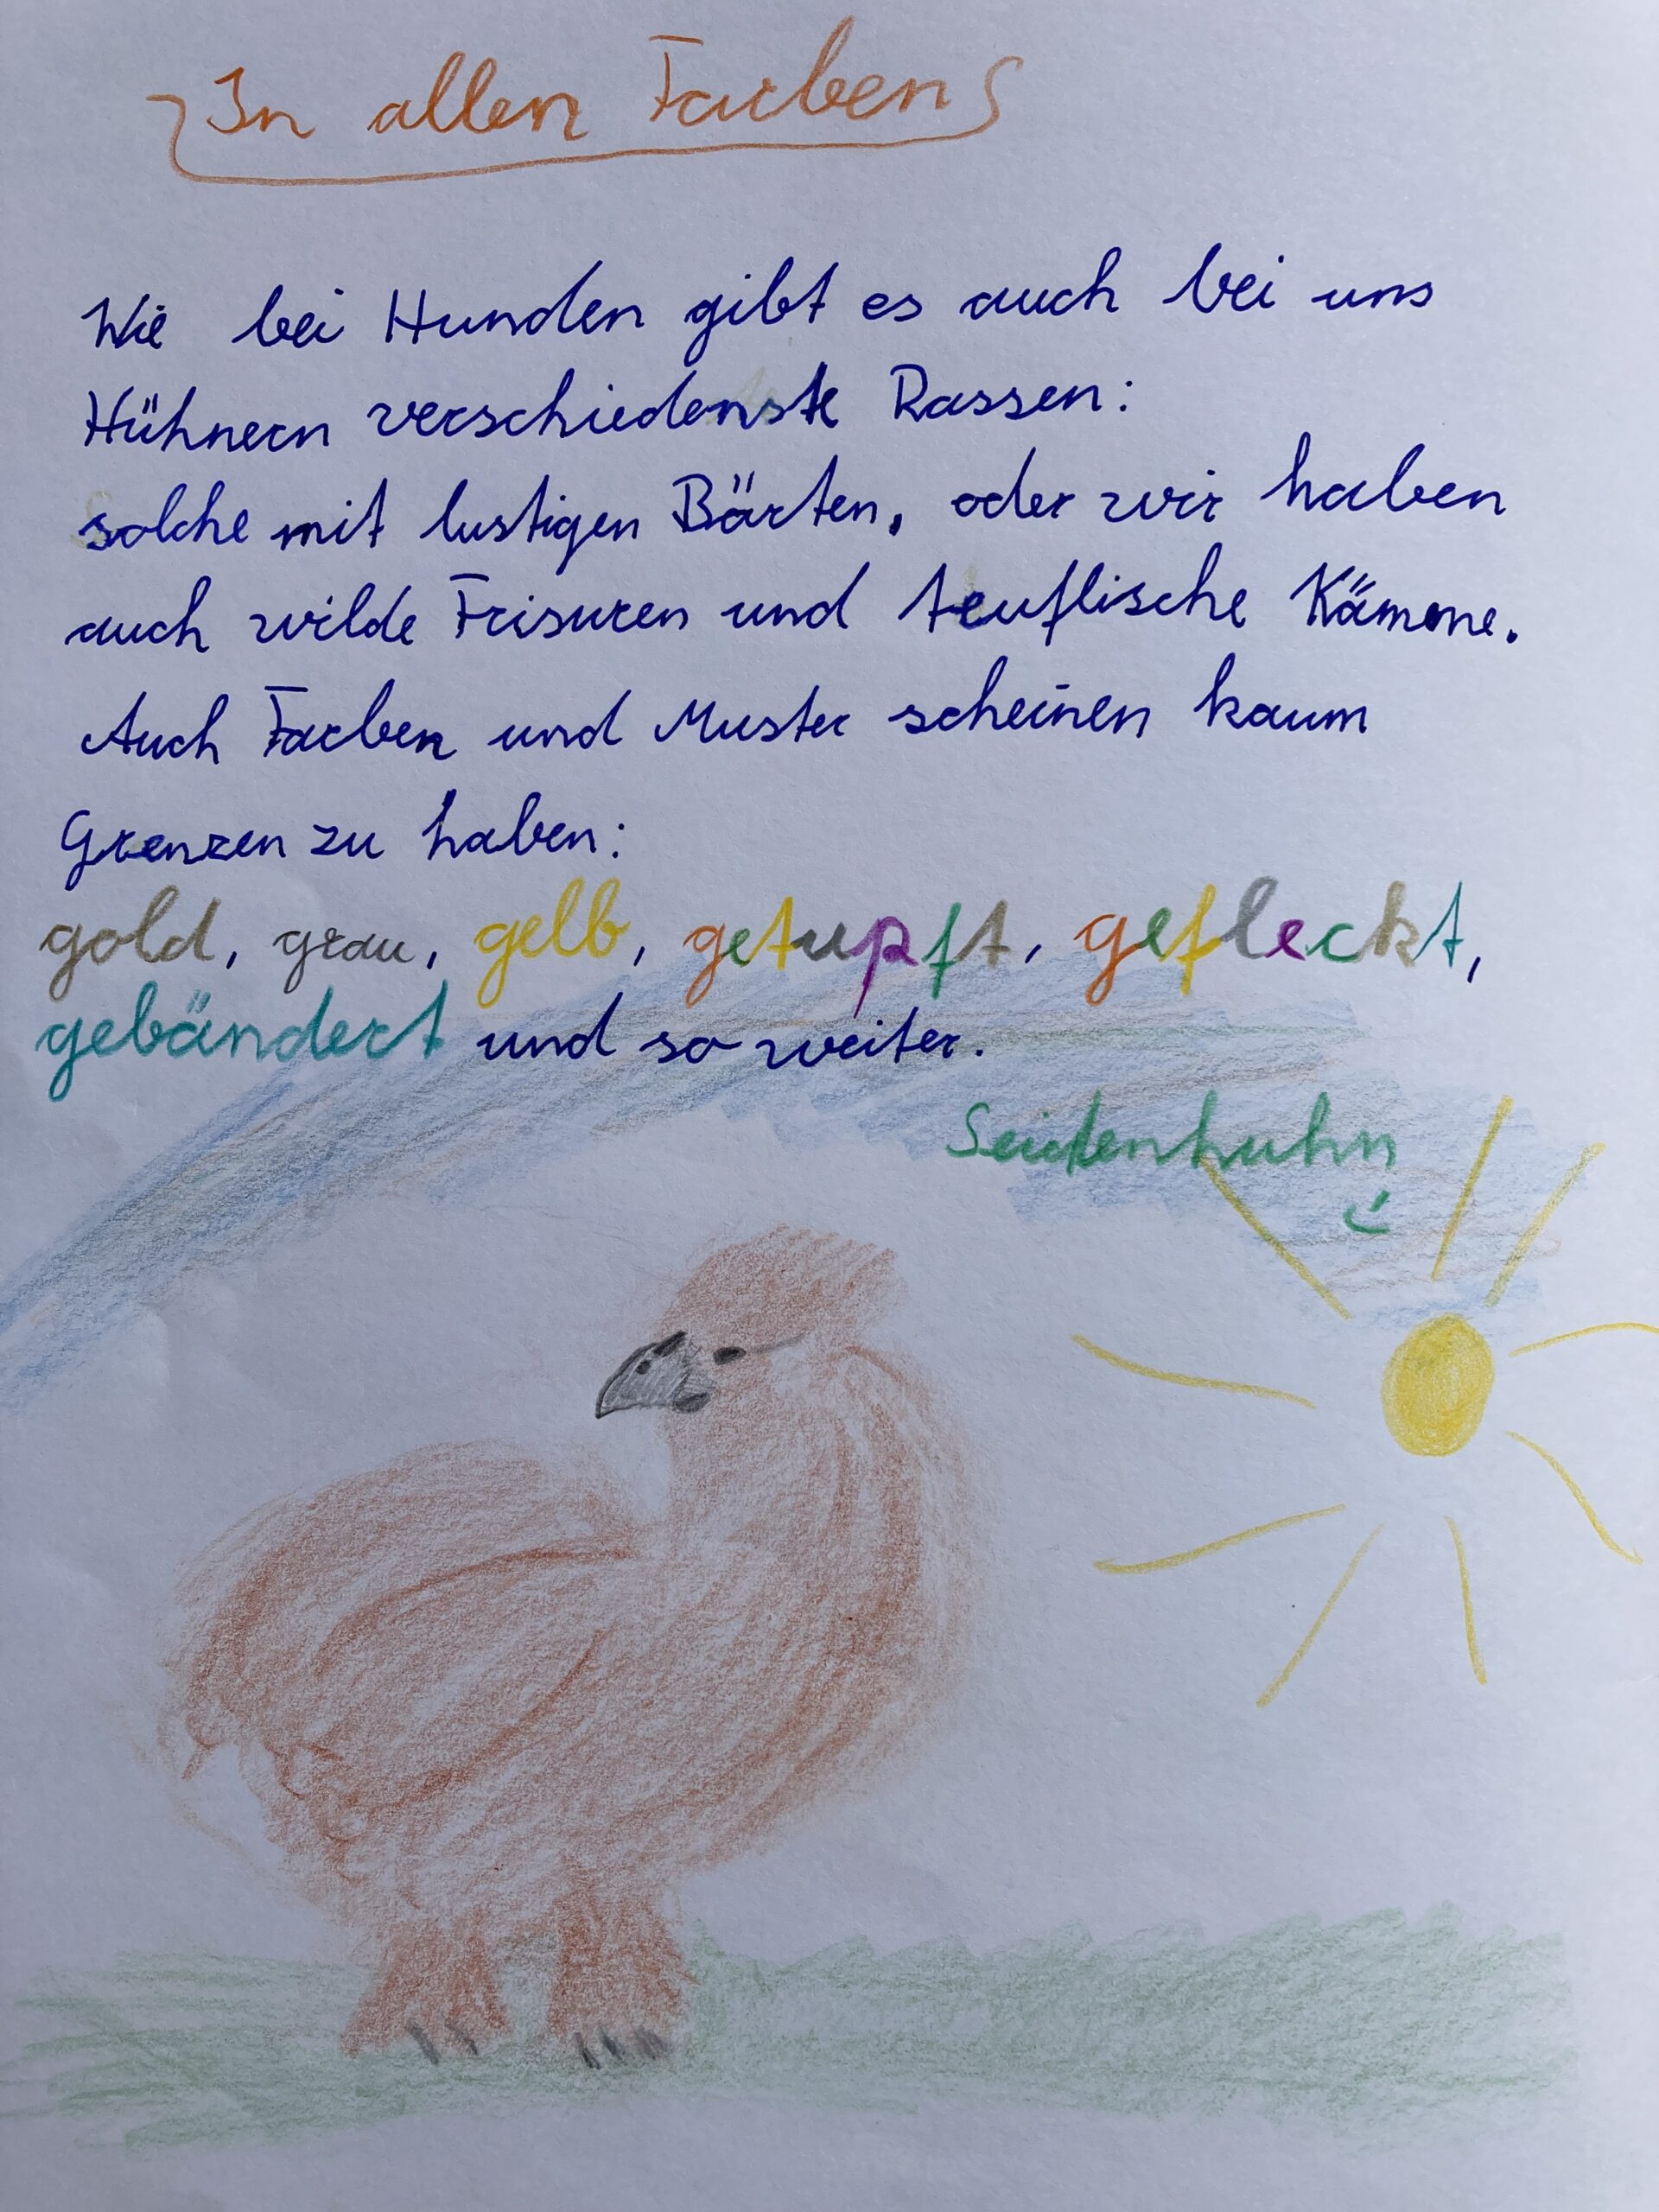 In allen Farben
Wie bei Hunden gibt es auch bei uns
Hühnern verschiedenste Rassen:
solche mit lustigen Bärten, oder wir haben
auch wilde Frisuren und teuflische Kämme.
Auch Farben und Muster scheinen kaum
Grenzen zu haben:
gold, grau, gelb, getupft, gefleckt,
gebändert und so weiter.
Seidenhuhn